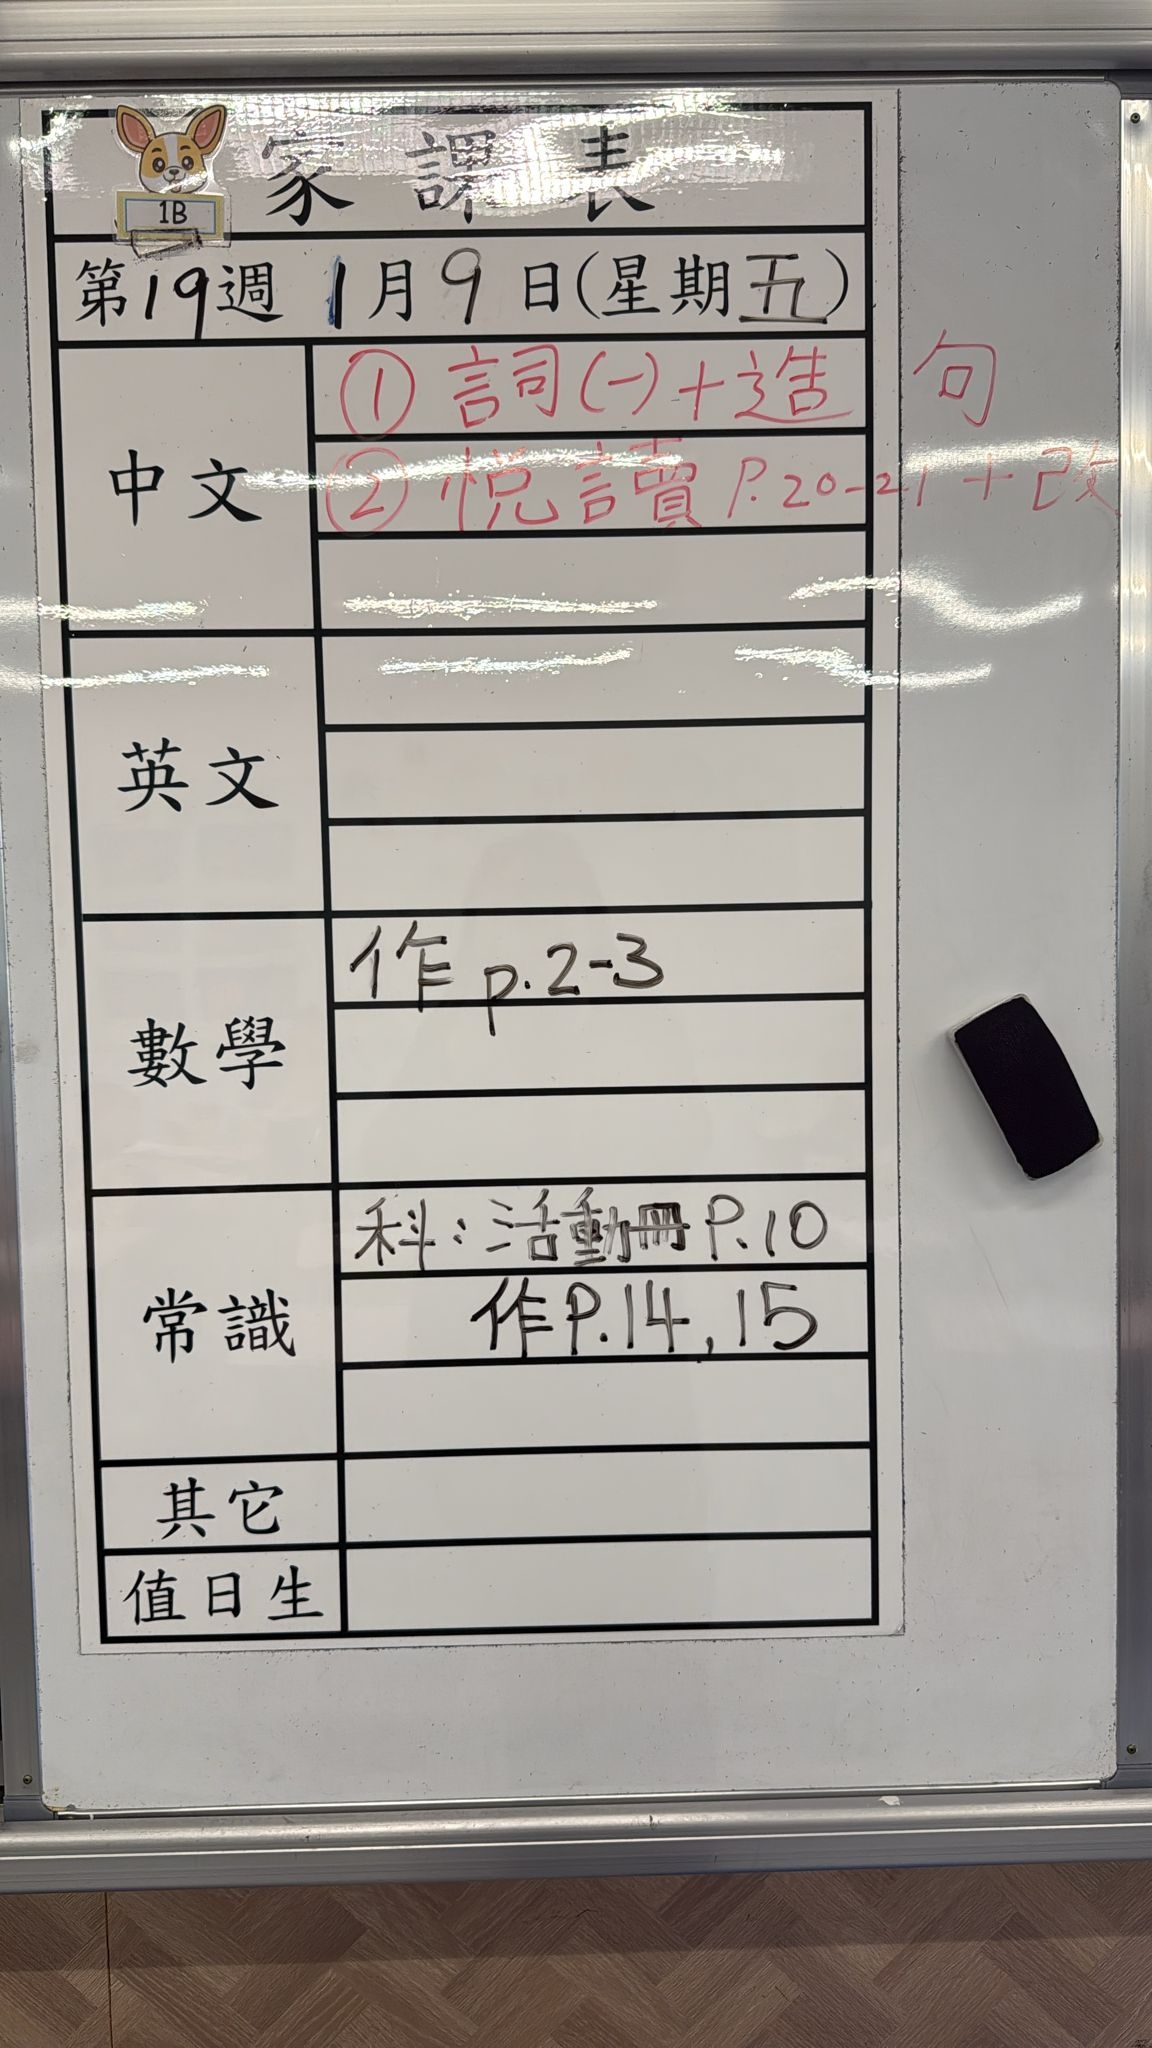 1B
家課表
第19週 1月9日(星期五)
中文
① 詞(一)+造句
② 悦讀 P.20-21 + 改
英文
數學
作 p.2-3
常識
科:活動冊 P.10
作P.14,15
其它
值日生